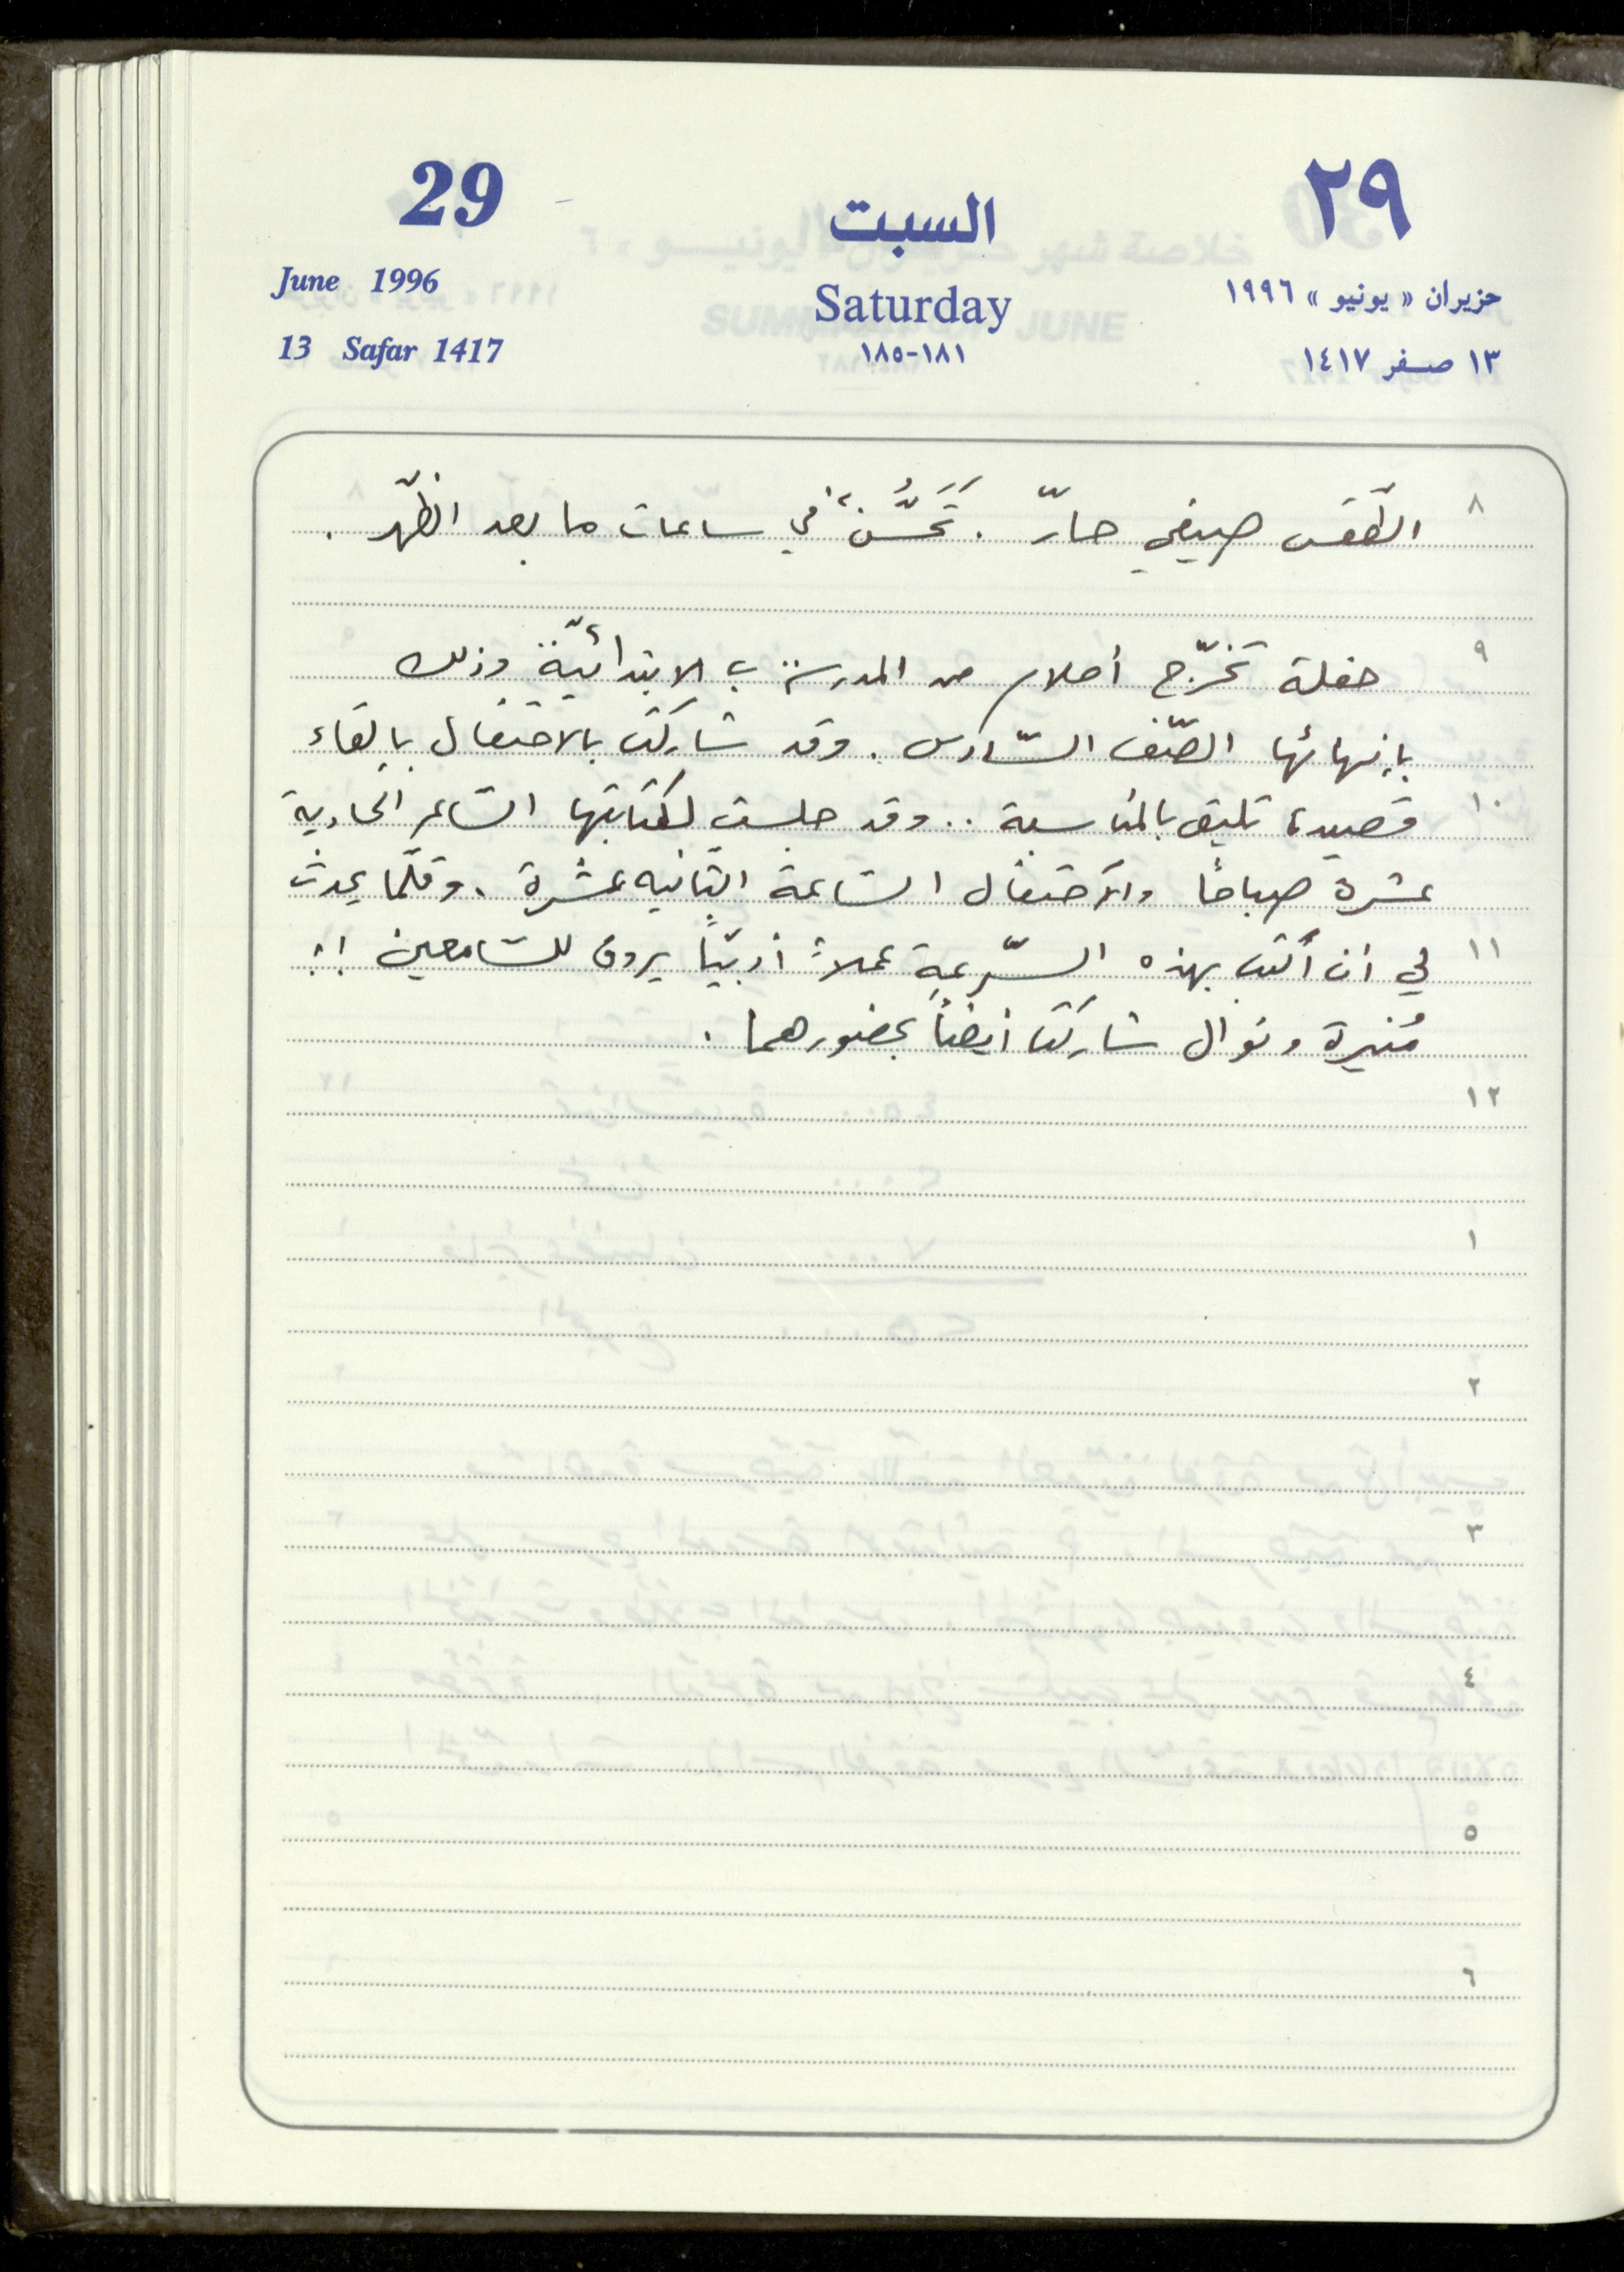 29
السبت
٢٩
June 1996
Saturday
حزيران « يونيو » ١٩٩٦
13 Safar 1417
١٨١-١٨٥
١٣ صفر ١٤١٧
٨
الطّقس صيفي حارّ . تَحَسُّنٌ في ساعات ما بعد الظّهر .
٩
حفلة تخرّج أحلام من المدرسة ب الابتدائيّة وذلك
بإنهائها الصّف السّادس . وقد شاركتُ بالاحتفال بإلقاء
١٠
قصيدة تليق بالمناسبة .. وقد جلست لكتابتها السّاعة الحادية
عشرة صباحًا والاحتفال السّاعة الثانية عشرة . وقلّما يحدث
١١
لي أن أكتب بهذه السّرعة عملاً أدبيّاً يروق للسّامعين !!
مُنيرة ونوال شاركتا أيضاً بحضورهما .
١٢
١
٢
٣
٤
٥
٦